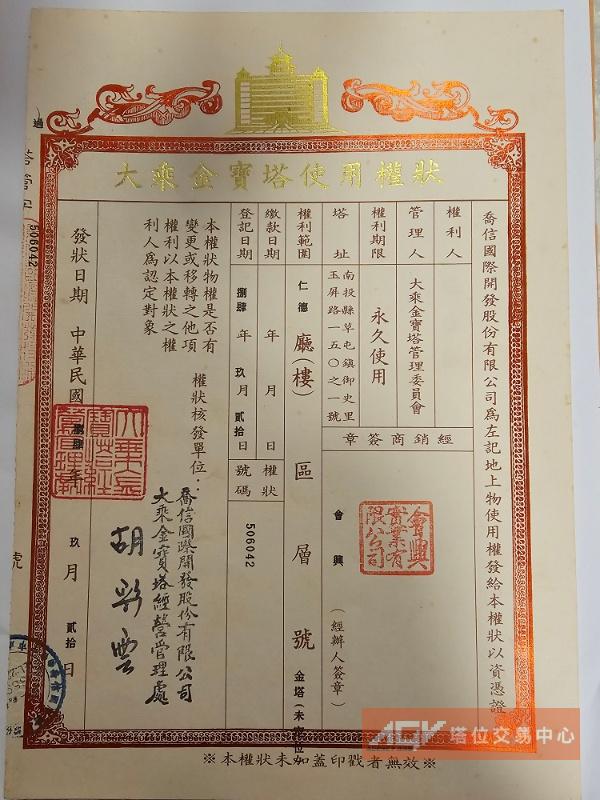 大乘金寶塔使用權狀
喬信國際開發股份有限公司為左記地上物使用權發給本權狀以資憑證
權利人
管理人
大乘金寶塔管理委員會
權利期限
永久使用
塔址
南投縣草屯鎮御史里
玉屏路一五〇之一號
經銷商簽章
會興
(經辦人簽章)
會興
實業有
限公司
權利範圍
仁德廳(樓)區層號金塔(未
位
繳款日期
年月日
權狀
號碼
506042
登記日期
捌肆年玖月貳拾日
本權狀物權是否有
變更或移轉之他項
權利以本權狀之權
利人為認定對象
權狀核發單位:
喬信國際開發股份有限公司
大乘金寶塔經營管理處
發狀日期
中華民國捌肆年玖月貳拾日
506042
號
※本權狀未加蓋印戳者無效※
塔位交易中心